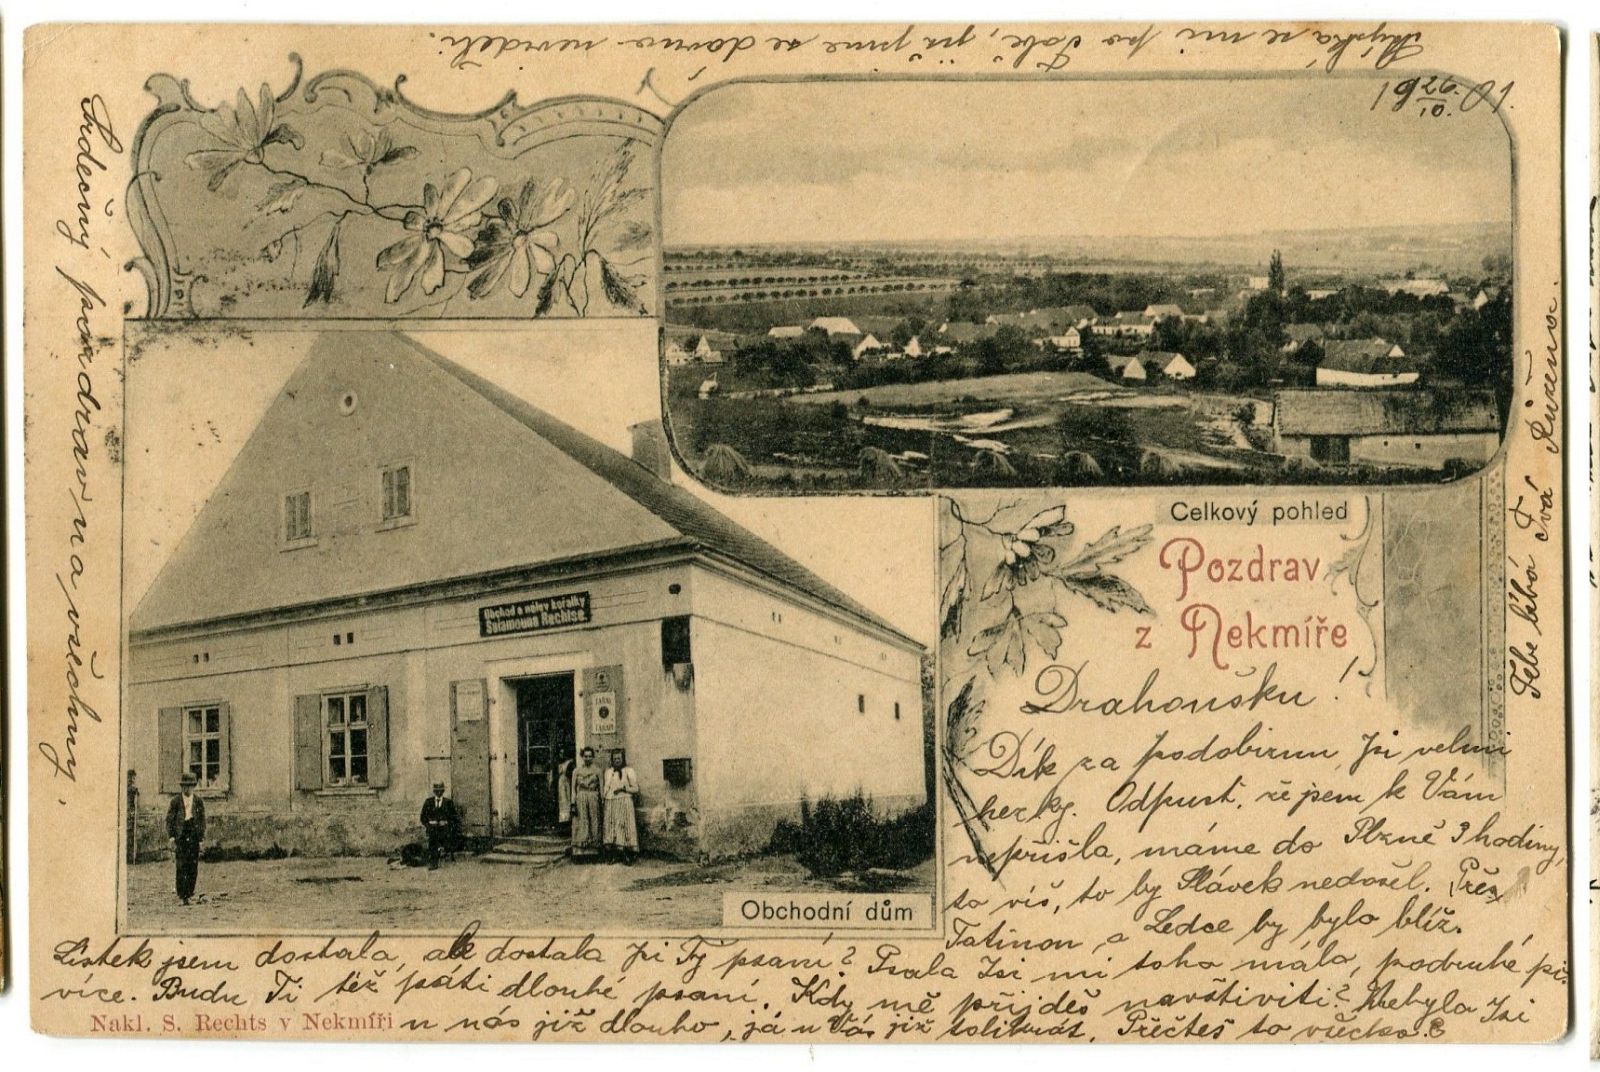 Stýská se mi po Tobě, již jsme se dávno neviděli.
19 26/10. 01.
Srdečný pozdrav na všechny.
Celkový pohled
Pozdrav
z Nekmíře
Obchod a nálev kořalky
Salamouna Rechtse
Obchodní dům
Drahoušku!
Dík za podobiznu, Jsi velmi
hezky. Odpusť, že jsem k Vám
nepřišla, máme do Plzně 3 hodiny,
to víš, to by Slávek nedošel. Přes
Tatinou a Ledce by bylo blíž.
Lístek jsem dostala, ale dostala Jsi Ty psaní? Psala Jsi mi toho málo, podruhé piš
více. Budu Ti též psáti dlouhé psaní. Kdy mě přijdeš navštíviti? Nebyla Jsi
u nás již dlouho, já u Vás již tolikrát. Přečteš to všecko?
Tebe líbá Tvá Růžena.
Nakl. S. Rechts v Nekmíři